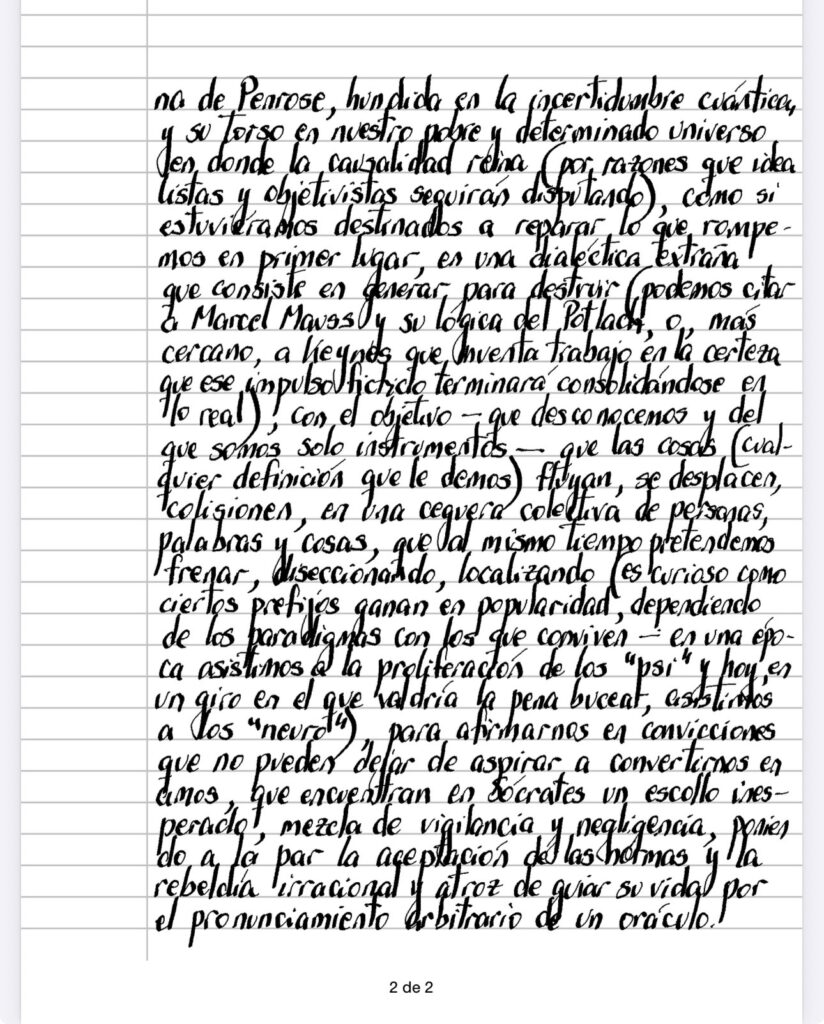 na de Penrose, hundida en la incertidumbre cuántica,
y su torso en nuestro pobre y determinado universo
en donde la causalidad reina (por razones que idea
listas y objetivistas seguirán disputando), como si
estuviéramos destinados a reparar lo que rompe-
mos en primer lugar, en una dialéctica extraña
que consiste en generar para destruir (podemos citar
a Marcel Mauss y su lógica del Potlach, o, más
cercano, a Keynes que inventa trabajo en la certeza
que ese impulso ficticio terminará consolidándose en
lo real), con el objetivo — que desconocemos y del
que somos solo instrumentos — que las cosas (cual-
quier definición que le demos) fluyan, se desplacen,
colisionen, en una ceguera colectiva de personas,
palabras y cosas, que al mismo tiempo pretendemos
frenar, diseccionando, localizando (es curioso como
ciertos prefijos ganan en popularidad, dependiendo
de los paradigmas con los que conviven — en una épo-
ca asistimos a la proliferación de los "psi" y hoy, en
un giro en el que valdría la pena bucear, asistimos
a los "neuro"), para afirmarnos en convicciones
que no pueden dejar de aspirar a convertirnos en
amos, que encuentran en Sócrates un escollo ines-
perado, mezcla de vigilancia y negligencia, ponien
do a la par la aceptación de las normas y la
rebeldía irracional y atroz de guiar su vida por
el pronunciamiento arbitrario de un oráculo.
2 de 2